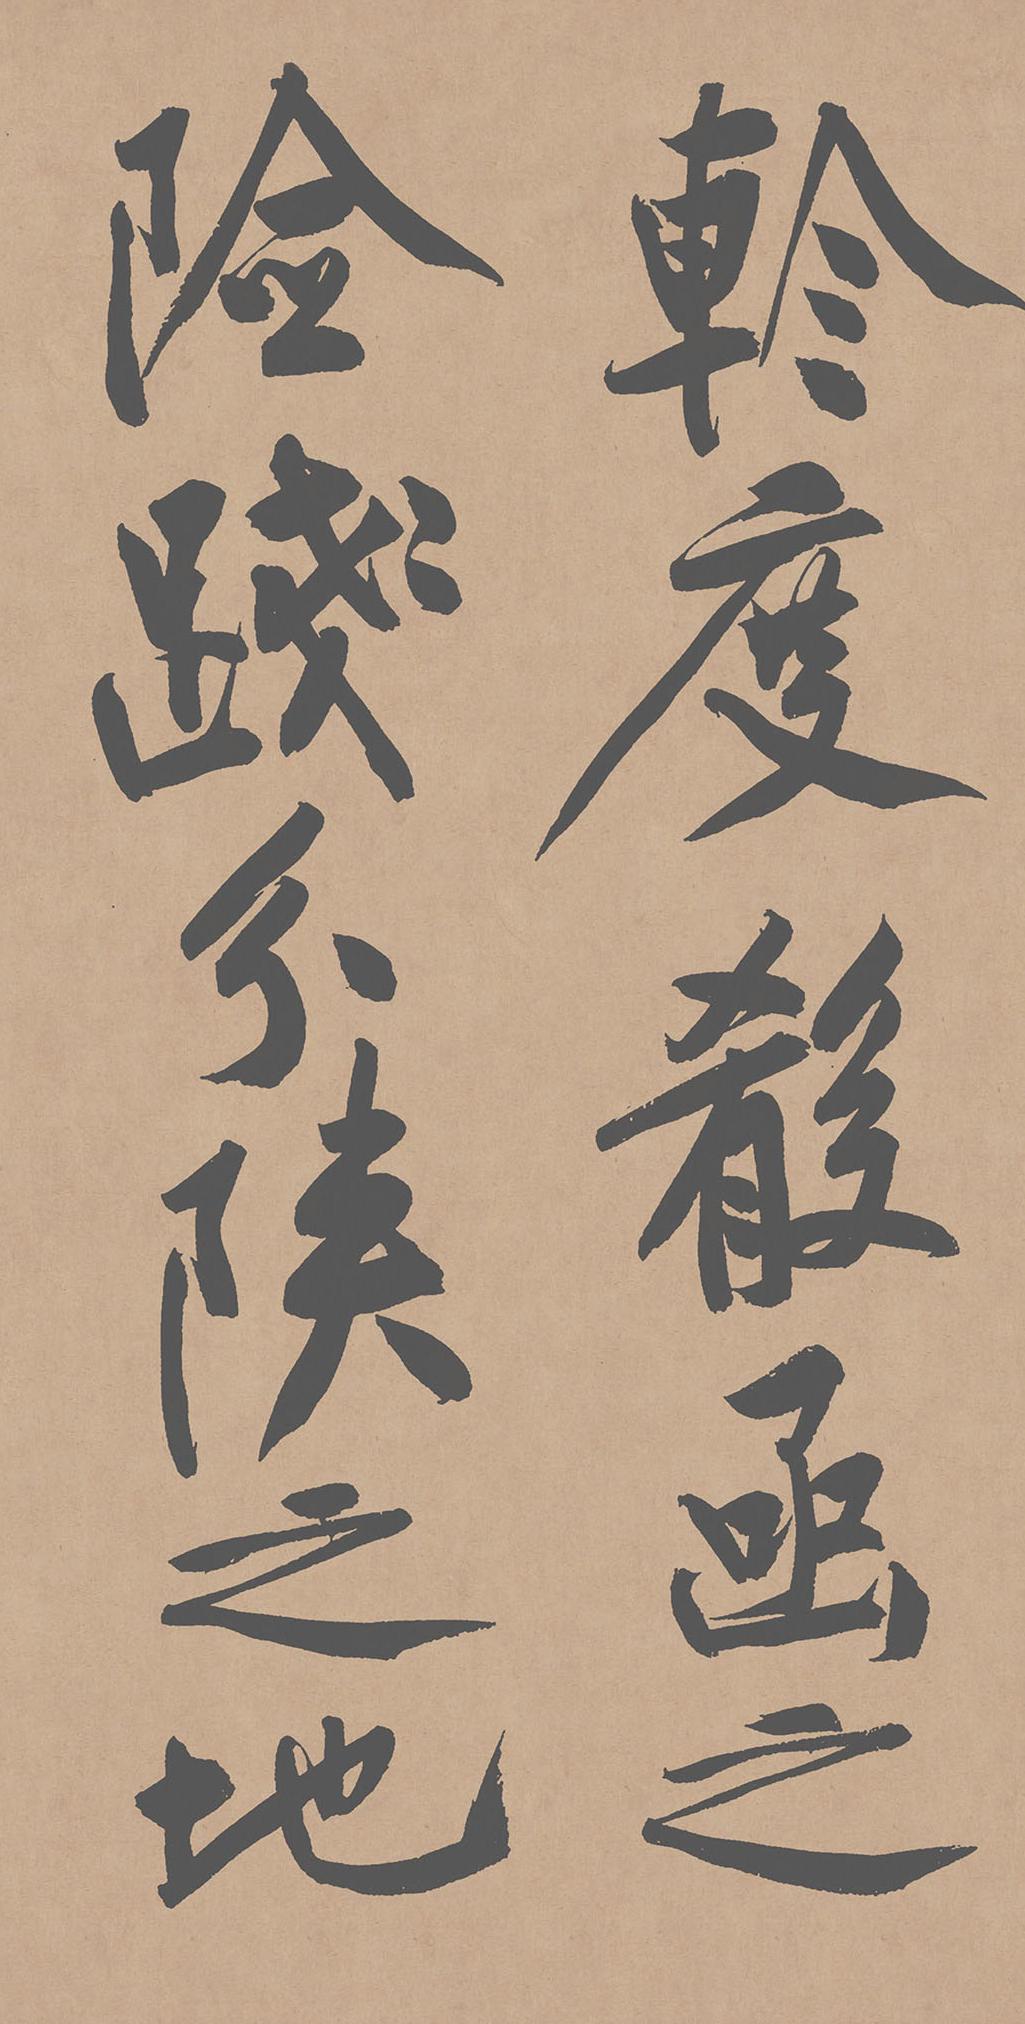 軫度殽函之
險踐分陝之地